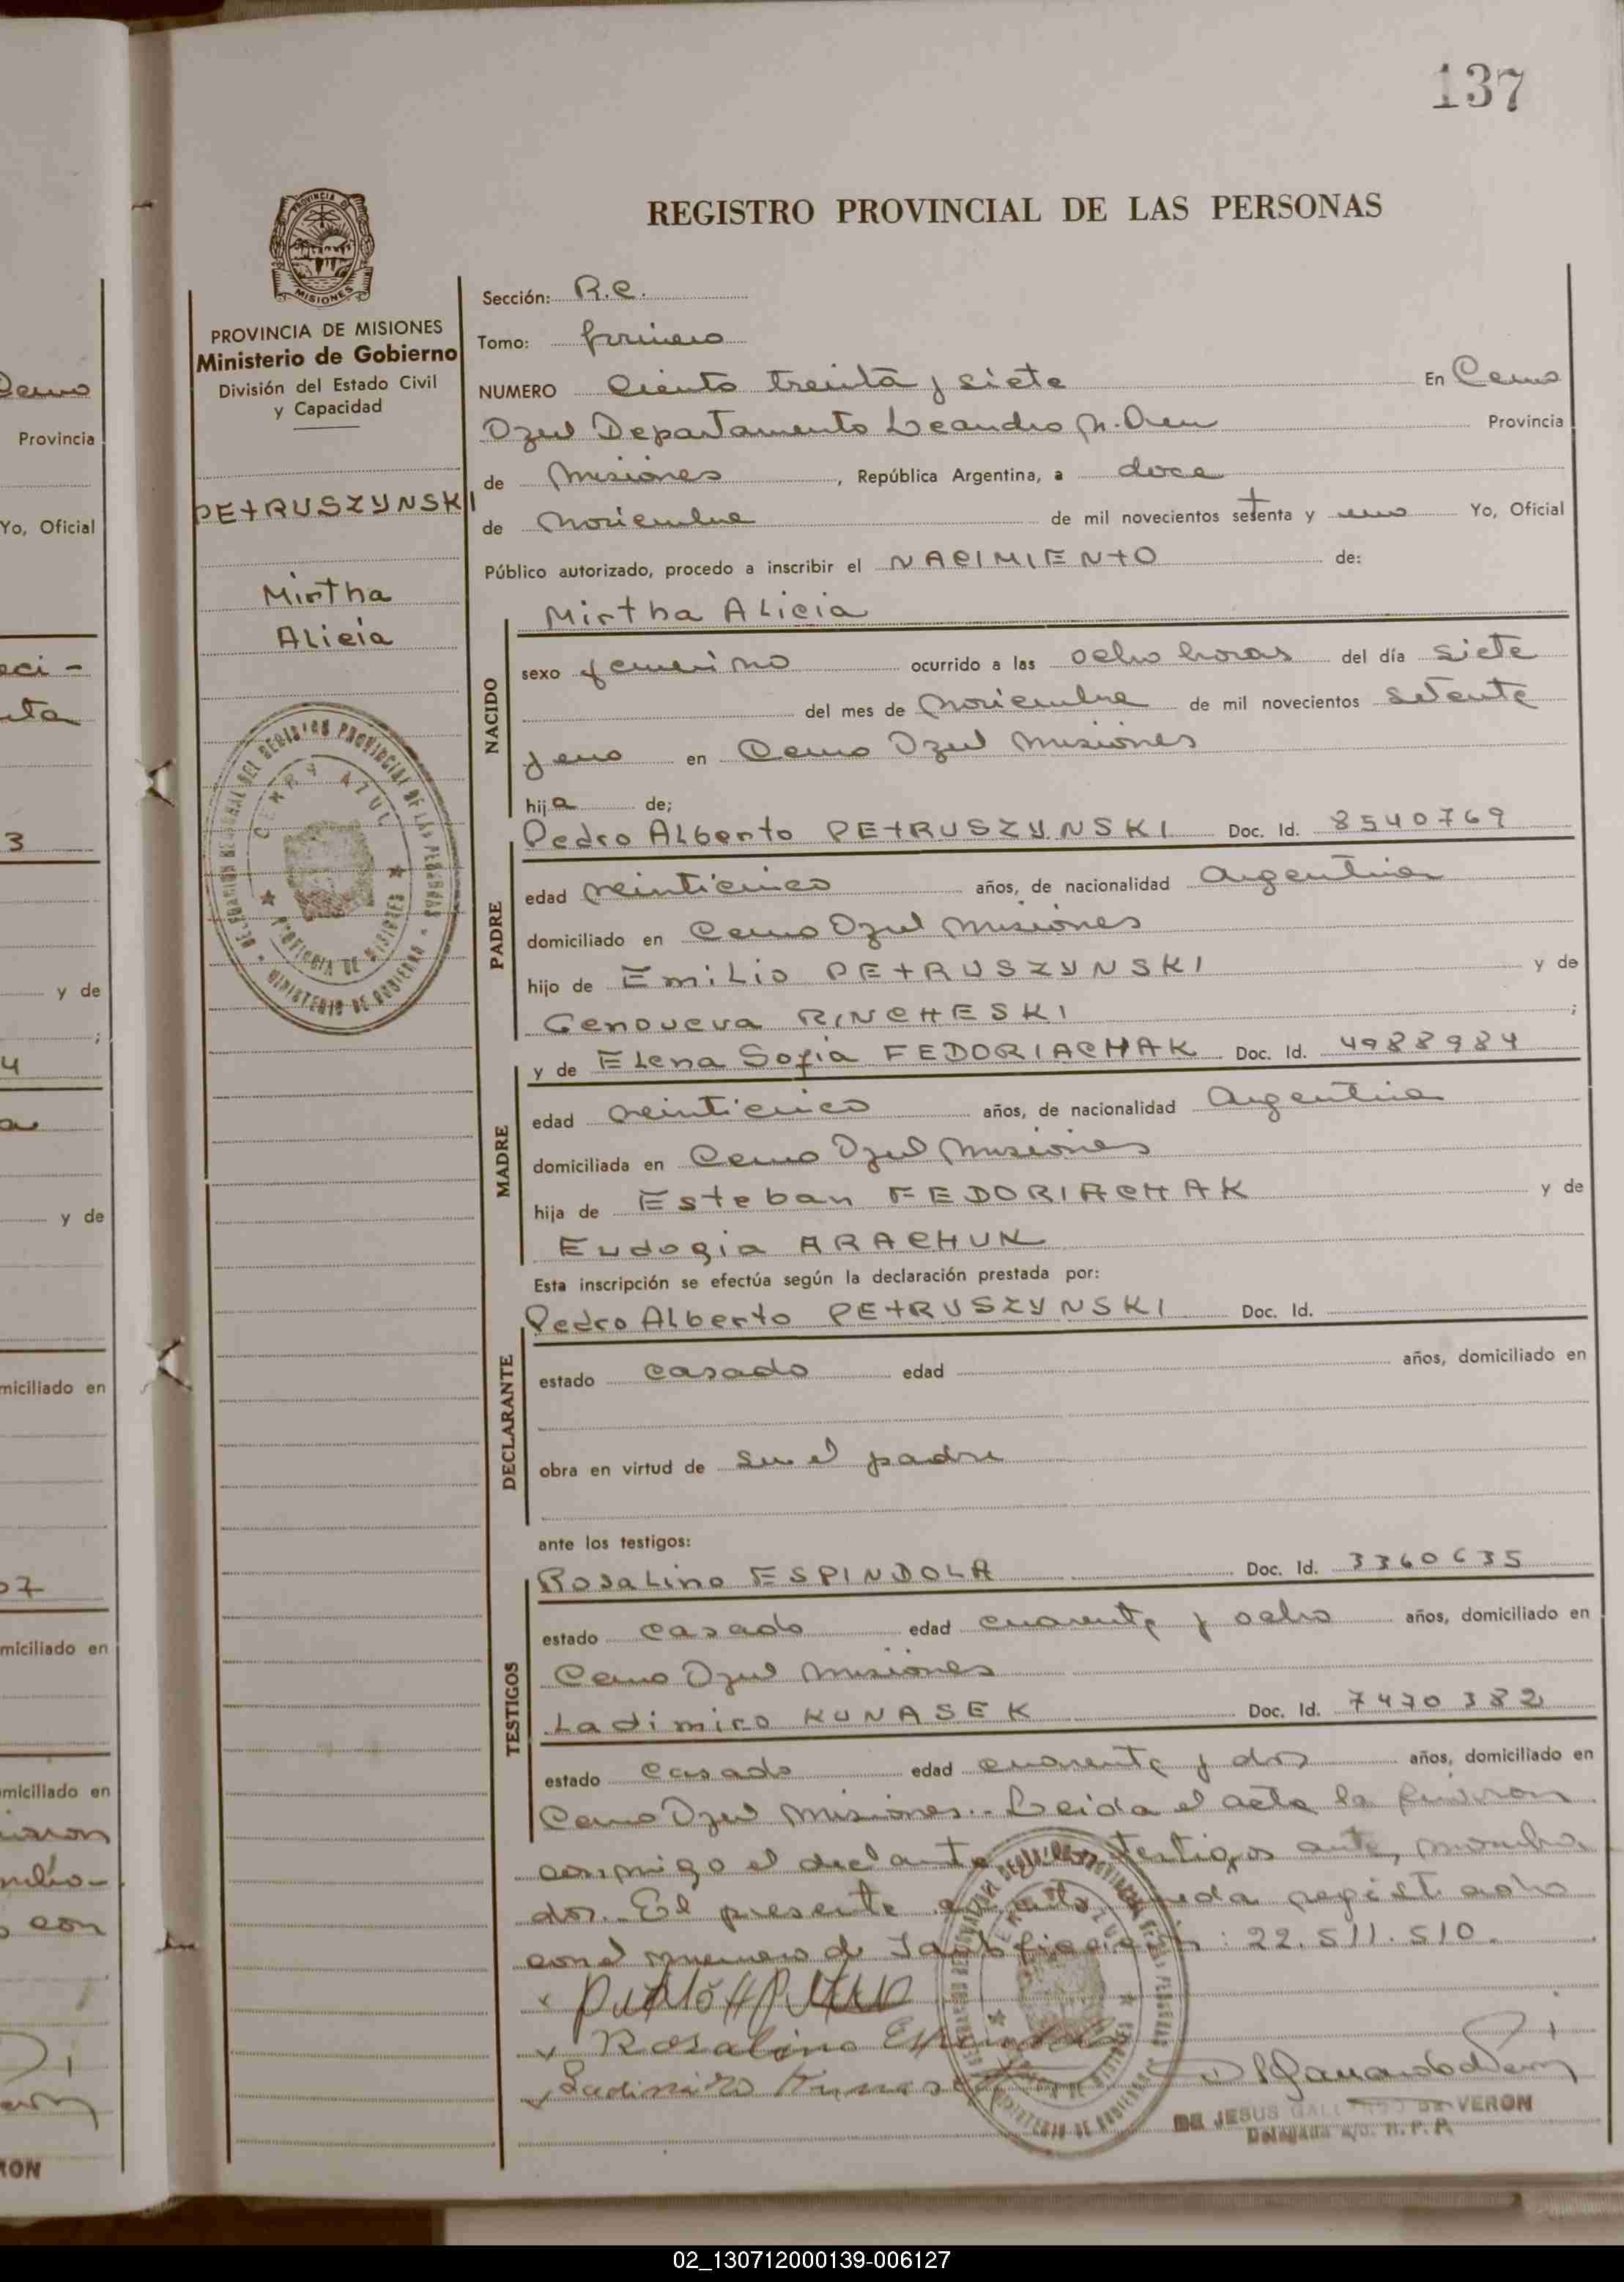 137
REGISTRO PROVINCIAL DE LAS PERSONAS
PROVINCIA DE MISIONES
Ministerio de Gobierno
División del Estado Civil
y Capacidad
PETRUSZYNSKI
Mirtha
Alicia
Sección: R.C.
Tomo: primero
NUMERO Ciento treinta y siete En Cerro
Azul Departamento Leandro N. Alem Provincia
de Misiones, República Argentina, a doce
de Noviembre de mil novecientos setenta y uno Yo, Oficial
Público autorizado, procedo a inscribir el NACIMIENTO de:
Mirtha Alicia
NACIDO
sexo femenino ocurrido a las ocho horas del día siete
del mes de Noviembre de mil novecientos setenta
y uno en Cerro Azul Misiones
hija de;
Pedro Alberto PETRUSZYNSKI Doc. Id. 8540769
PADRE
edad veinticinco años, de nacionalidad Argentina
domiciliado en Cerro Azul Misiones
hijo de Emilio PETRUSZYNSKI y de
Genoveva RINCHESKI ;
y de Elena Sofia FEDORIACHAK Doc. Id. 4988984
MADRE
edad veinticinco años, de nacionalidad Argentina
domiciliada en Cerro Azul Misiones
hija de Esteban FEDORIACHAK y de
Eudogia ARACHUK
Esta inscripción se efectúa según la declaración prestada por:
Pedro Alberto PETRUSZYNSKI Doc. Id.
DECLARANTE
estado casado edad años, domiciliado en
obra en virtud de ser el padre
ante los testigos:
Rosalino ESPINDOLA Doc. Id. 3360635
TESTIGOS
estado casado edad cuarenta y ocho años, domiciliado en
Cerro Azul Misiones
Ladimiro KUNASEK Doc. Id. 7470382
estado casado edad cuarenta y dos años, domiciliado en
Cerro Azul Misiones.- Leida el acta la firmaron
conmigo el declante testigos ante, nombra
dos. El presente queda registrado
con el numero de : 22.511.510.
Rosalino Espindola
Ladimiro Kunasek
DE JESUS GALLARDO DE VERON
Delegada R.P.P.
02_130712000139-006127